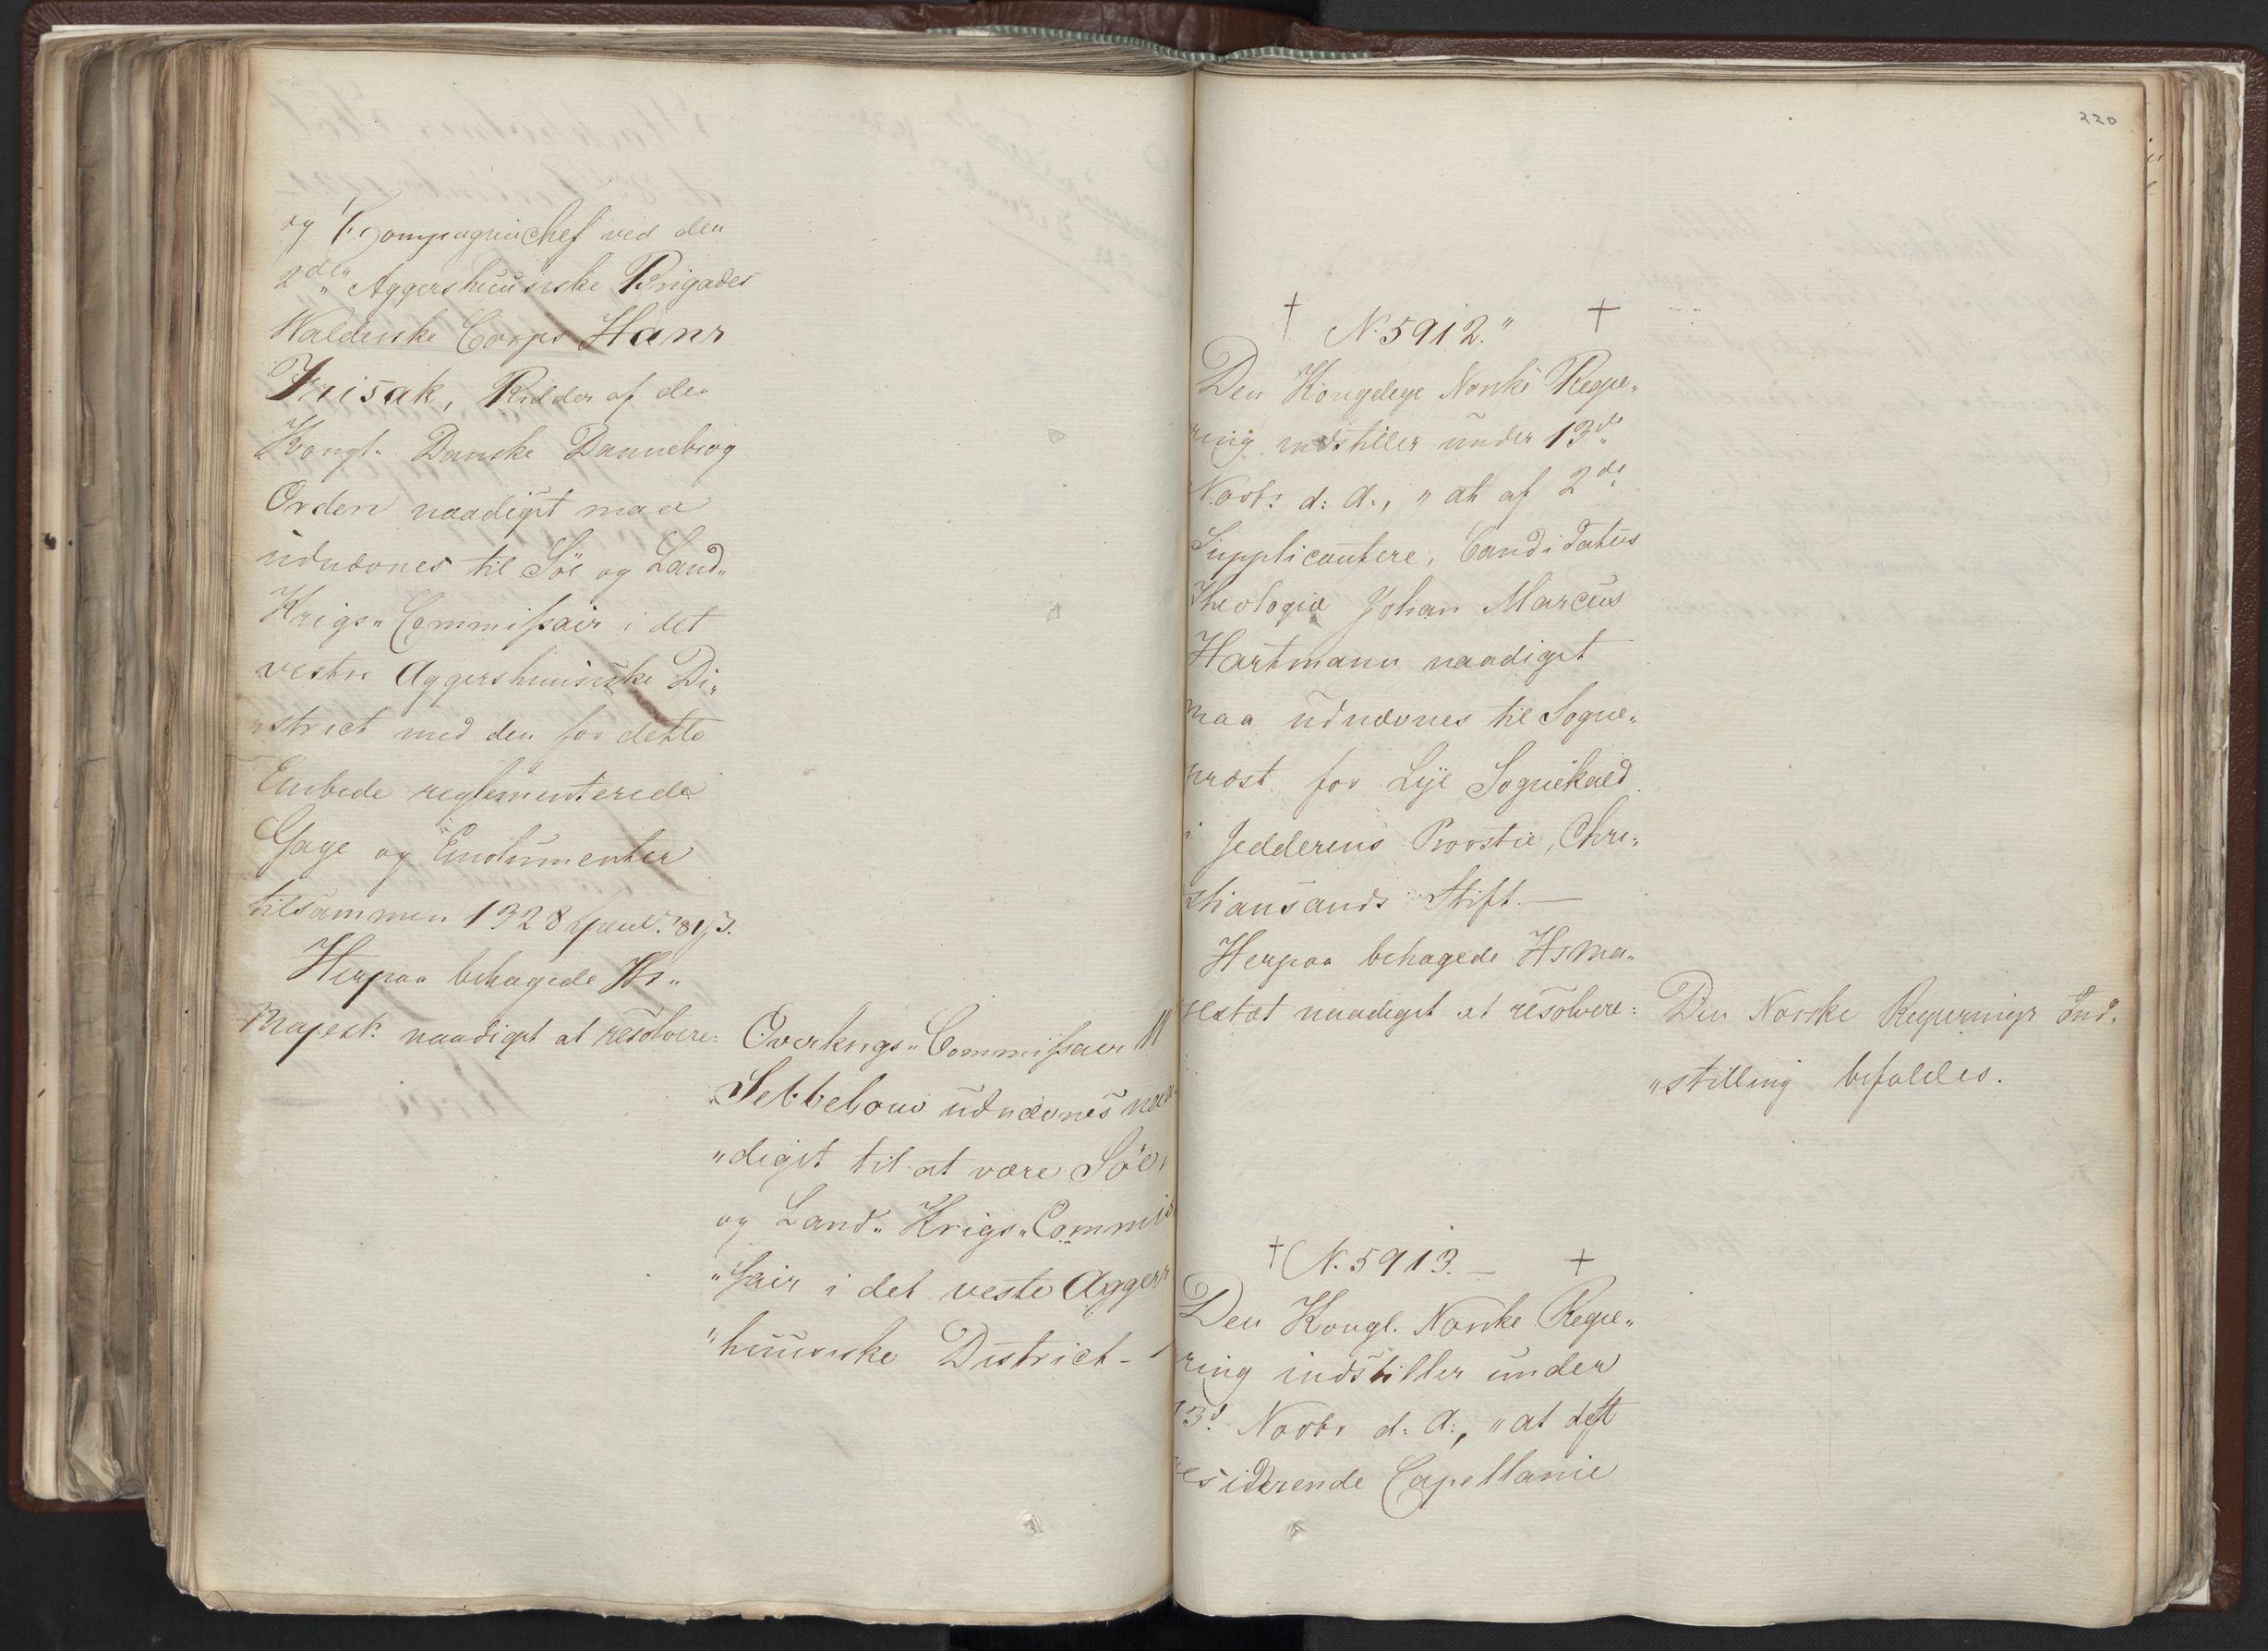 og Compagniechef ved den
2den Aggershuusiske Brigades
Walderske Corps Hans
Frisak, Ridder af den
Kongl. Danske Dannebrog
Orden naadigst maa
udnævnes til Söe og Land„
Krigs„Commissair i det
vestre Aggershuusiske Di„
„strict med den for dette
Embede reglementerede
Gage og Emolumenter
tilsammen 1328 Spend. 81 β.
Herpaa behagede Hs„
Majest: naadigst at resolvere:
Overkrigs„Commissair
Sebbelow udnævnes naa
„digst til at være Söe„
og Land„Krigs„Commis
„sair i det vestre Aggers
„huusiske District-
220
† N. 5912." †
Den Kongelige Norske Rege„
ring indstiller under 13de
Novbr: d: A:, "at af 2de
Supplicantere, Candidatus
Theologiæ Johan Marcus
Hartmann naadigst
maa udnævnes til Sogne„
præst for Lye Sognekald
i Jedderens Provstie, Chri„
stiansands Stift. —
Herpaa behagede Hs Ma„
jestæt naadigst at resolvere:
Den Norske Regjerings Ind„
„stilling bifaldes.
† N. 5913. — †
Den Kongl. Norske Rege„
ring indstiller under
13d. Novbr d: A:, "at det
residerende Capellanie